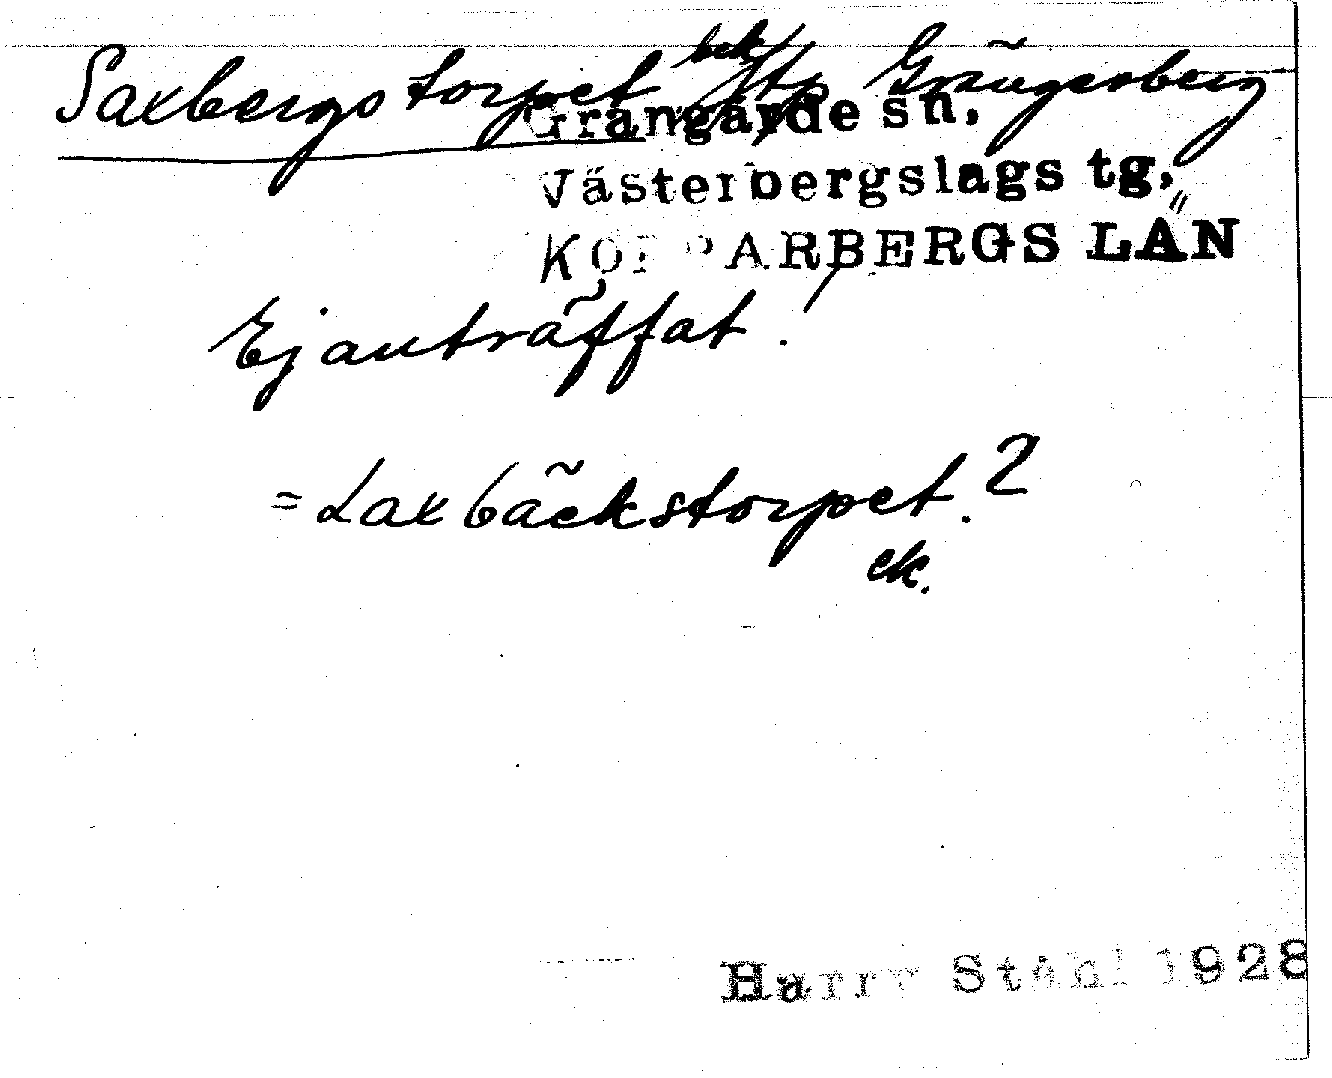 Saxbergstorpet bek Stp Grängesberg
Grangärde sn,
Västerbergslags tg,
KOPPARBERGS LÄN
Ej anträffat!
= Laxbäckstorpet?
ek.
Harry Ståhl 1928